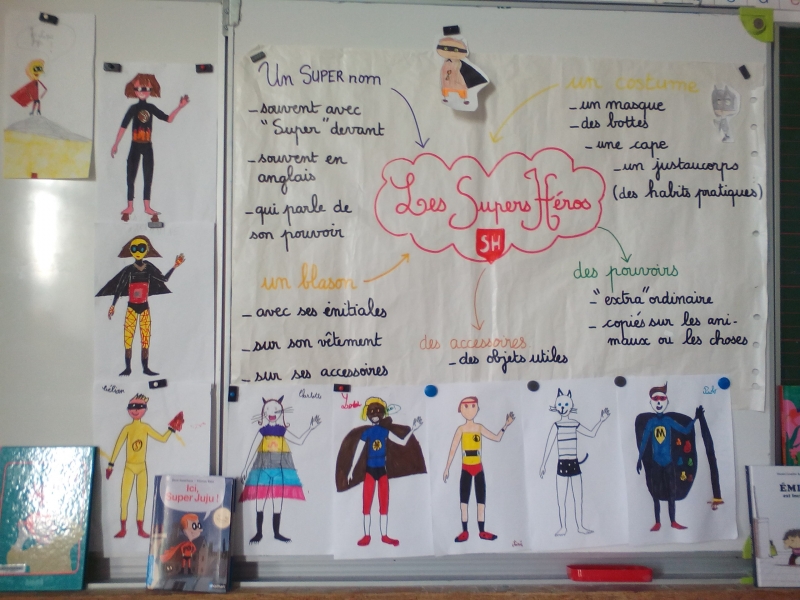 Un SUPER nom
- souvent avec
"Super" devant
- souvent en
anglais
- qui parle de
son pouvoir
un costume
- un masque
- des bottes
- une cape
- un justaucorps
(des habits pratiques)
Les Supers Héros
SH
un blason
- avec ses initiales
- sur son vêtement
- sur ses accessoires
des accessoires
- des objets utiles
des pouvoirs
- "extra" ordinaire
- copiés sur les ani-
maux ou les choses
M
Ici,
Super Juju !
ÉMI